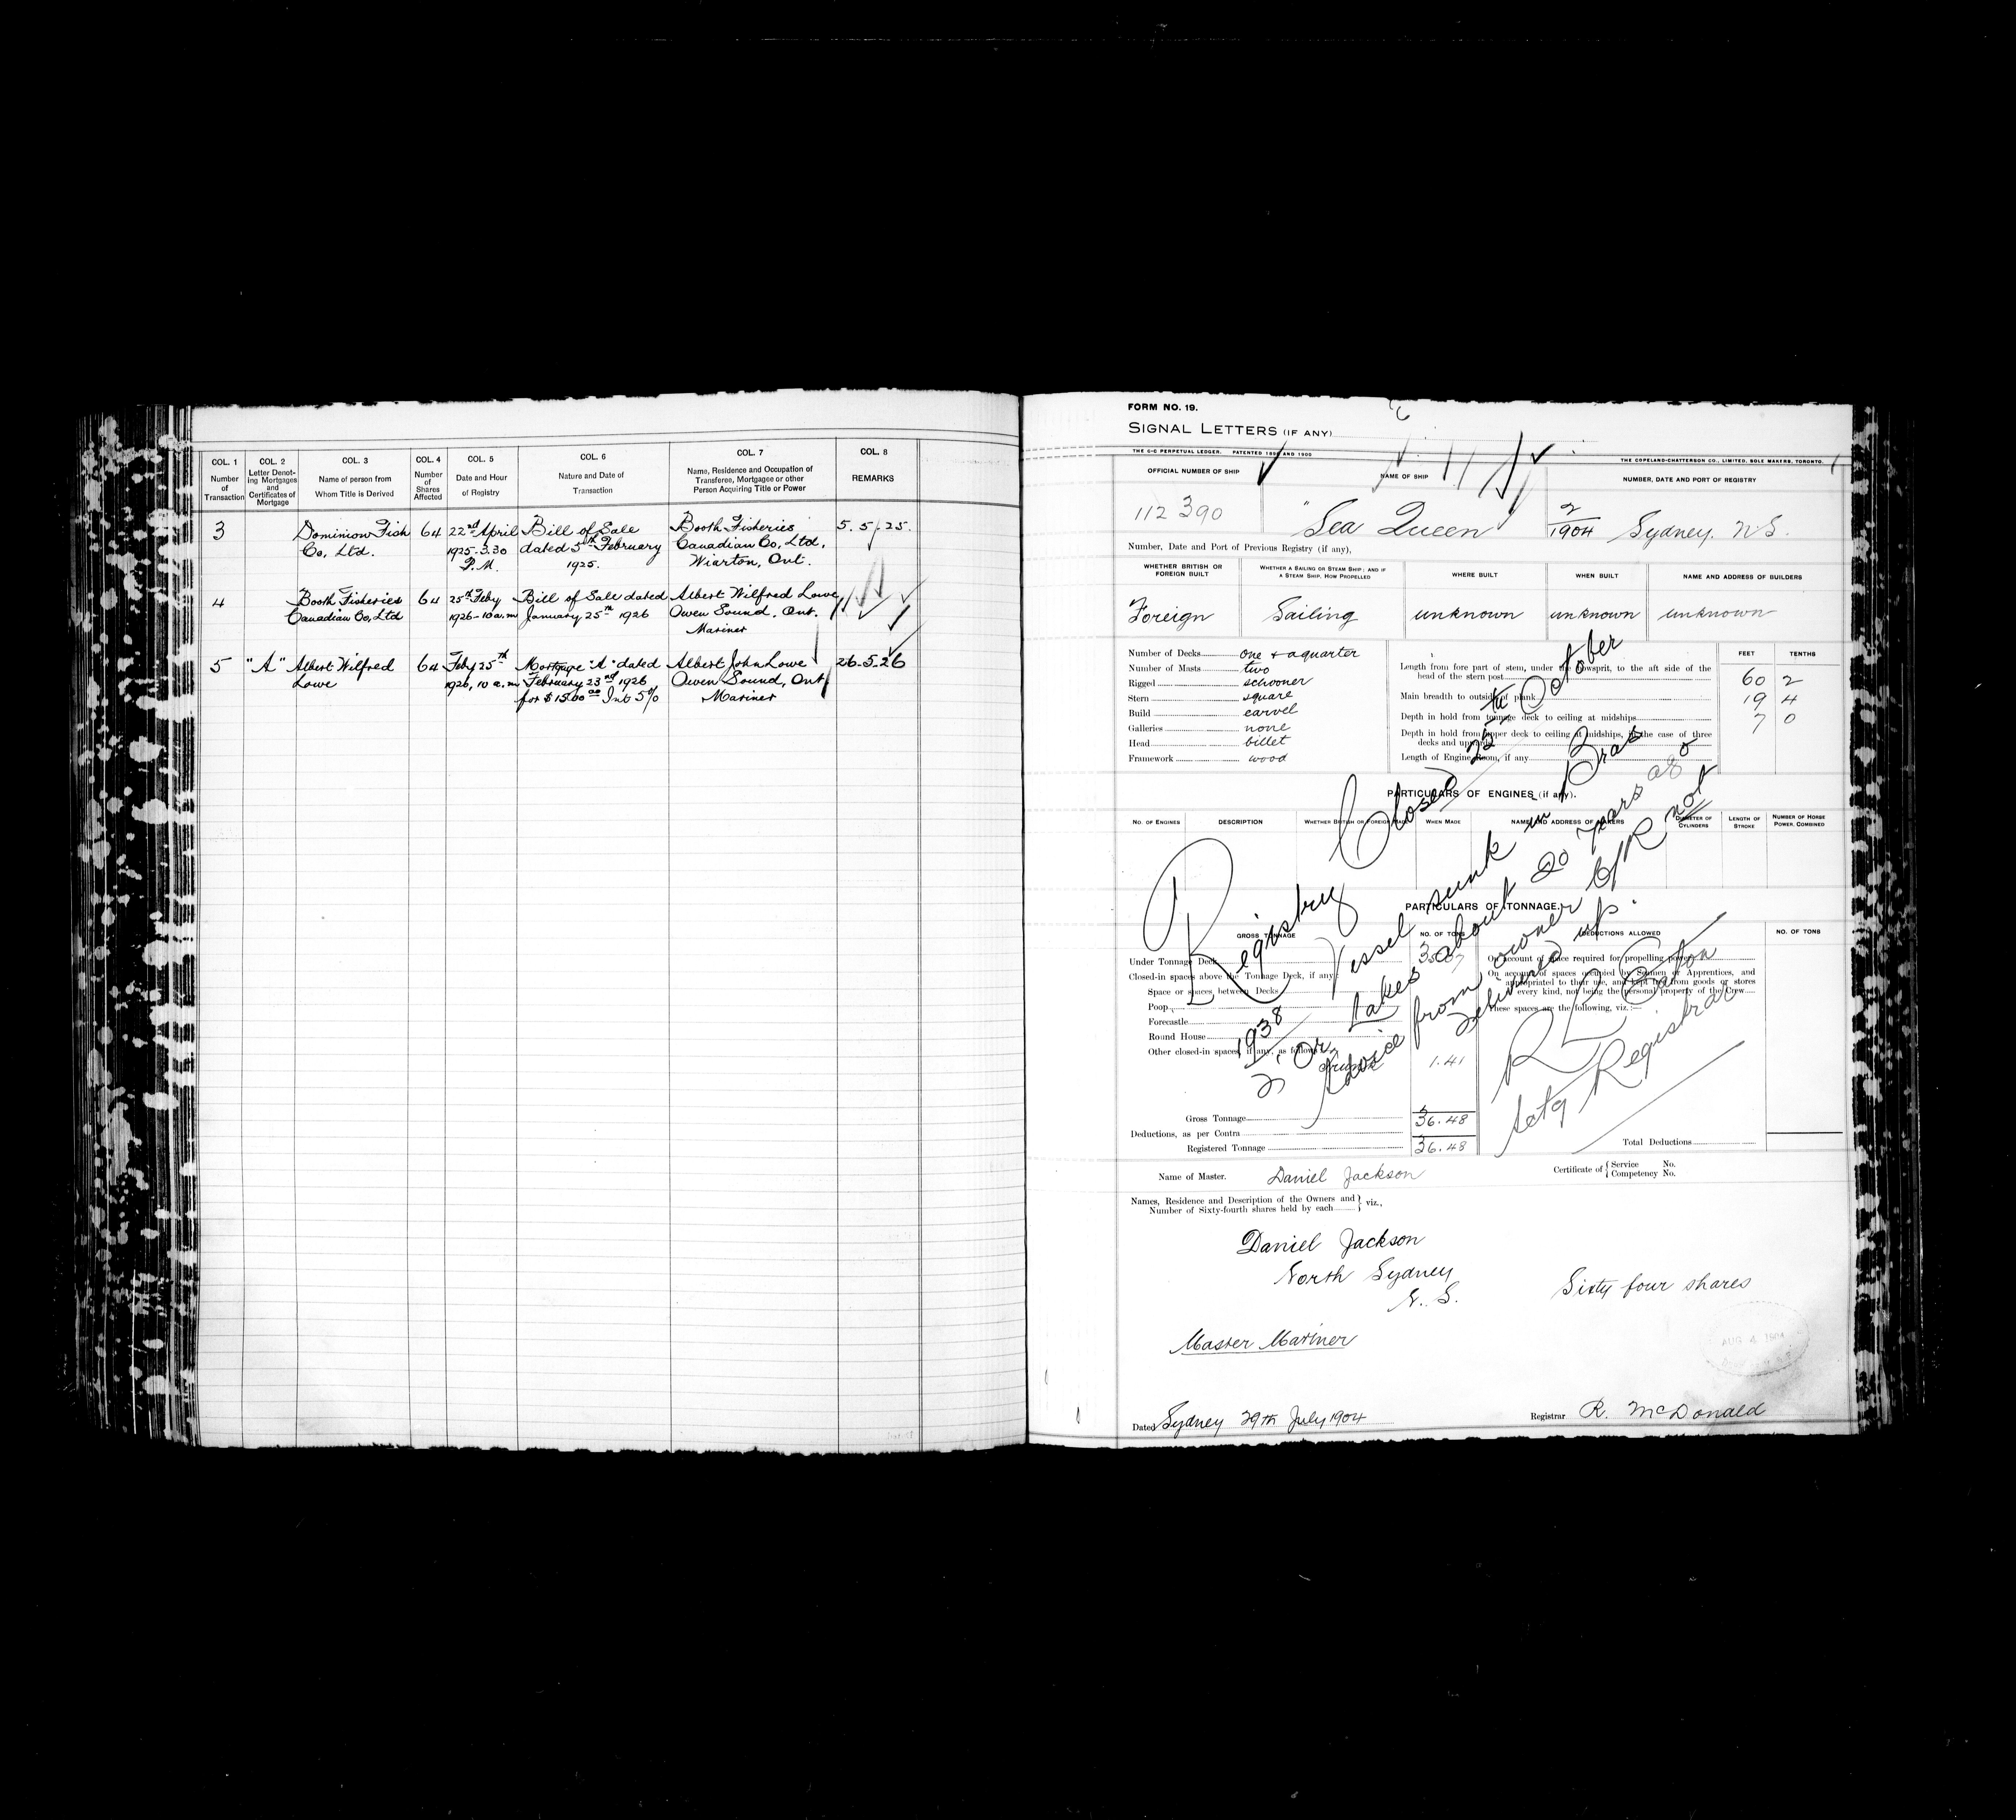 COL. 1
Number
of
Transaction
COL. 2
Letter Denot-
ing Mortgages
and
Certificates of
Mortgage
COL. 3
Name of person from
Whom Title is Derived
COL. 4
Number
of
Shares
Affected
COL. 5
Date and Hour
of Registry
COL. 6
Nature and Date of
Transaction
COL. 7
Name, Residence and Occupation of
Transferee, Mortgagee or other
Person Acquiring Title or Power
COL. 8
REMARKS
3
Dominion Fish
Co, Ltd.
64
22nd April
1925. 3.30
P.M.
Bill of Sale
dated 5th February
1925.
Booth Fisheries
Canadian Co, Ltd,
Wiarton, Ont.
5. 5. 25.
4
Booth Fisheries
Canadian Co, Ltd
64
25th Feby
1926 - 10 a.m
Bill of Sale dated
January 25th 1926
Albert Wilfred Lowe
Owen Sound, Ont.
Mariner
5
"A"
Albert Wilfred
Lowe
64
Feby 25th
1926, 10 a.m
Mortgage "A" dated
February 23rd 1926
for $1500 00 Int 5%
Albert John Lowe
Owen Sound, Ont
Mariner
26.5.26
FORM NO. 19.
SIGNAL LETTERS (IF ANY)
THE C-C PERPETUAL LEDGER. PATENTED 1895 AND 1900
THE COPELAND-CHATTERSON CO., LIMITED, SOLE MAKERS, TORONTO.
OFFICIAL NUMBER OF SHIP
NAME OF SHIP
NUMBER, DATE AND PORT OF REGISTRY
112 390
"Sea Queen"
2/1904 Sydney. N.S.
Number, Date and Port of Previous Registry (if any),
WHETHER BRITISH OR
FOREIGN BUILT
WHETHER A SAILING OR STEAM SHIP; AND IF
A STEAM SHIP, HOW PROPELLED
WHERE BUILT
WHEN BUILT
NAME AND ADDRESS OF BUILDERS
Foreign
Sailing
unknown
unknown
unknown
Number of Decks one + a quarter
Number of Masts two
Rigged schooner
Stern square
Build carvel
Galleries none
Head billet
Framework wood
FEET TENTHS
Length from fore part of stem, under the bowsprit, to the aft side of the
head of the stern post 60 2
Main breadth to outside of plank 19 4
Depth in hold from tonnage deck to ceiling at midships 7 0
Depth in hold from upper deck to ceiling at midships, in the case of three
decks and upwards
Length of Engine Room, if any
PARTICULARS OF ENGINES (if any).
NO. OF ENGINES
DESCRIPTION
WHETHER BRITISH OR FOREIGN MADE
WHEN MADE
NAME AND ADDRESS OF MAKERS
DIAMETER OF
CYLINDERS
LENGTH OF
STROKE
NUMBER OF HORSE
POWER, COMBINED
Registry Closed 25th October
1938
Vessel sunk in Bras
d'Or Lakes about 20 years ago
Advice from owner C/R not
delivered up.
R L Eaton
Actg Registrar
PARTICULARS OF TONNAGE.
GROSS TONNAGE
NO. OF TONS
DEDUCTIONS ALLOWED
NO. OF TONS
Under Tonnage Deck 35.07
Closed-in spaces above the Tonnage Deck, if any:
Space or spaces between Decks
Poop
Forecastle
Round House
Other closed-in spaces, if any, as follows
1.41
On account of space required for propelling power
On account of spaces occupied by Seamen or Apprentices, and
appropriated to their use, and kept free from goods or stores
every kind, not being the personal property of the Crew
These spaces are the following, viz.:
Gross Tonnage 36.48
Deductions, as per Contra
Registered Tonnage 36.48
Total Deductions
Name of Master. Daniel Jackson
Certificate of { Service No.
Competency No.
Names, Residence and Description of the Owners and
Number of Sixty-fourth shares held by each } viz.,
Daniel Jackson
North Sydney
N. S.
Sixty four shares
Master Mariner
AUG 4 1904
Dated Sydney 29th July 1904
Registrar R. McDonald